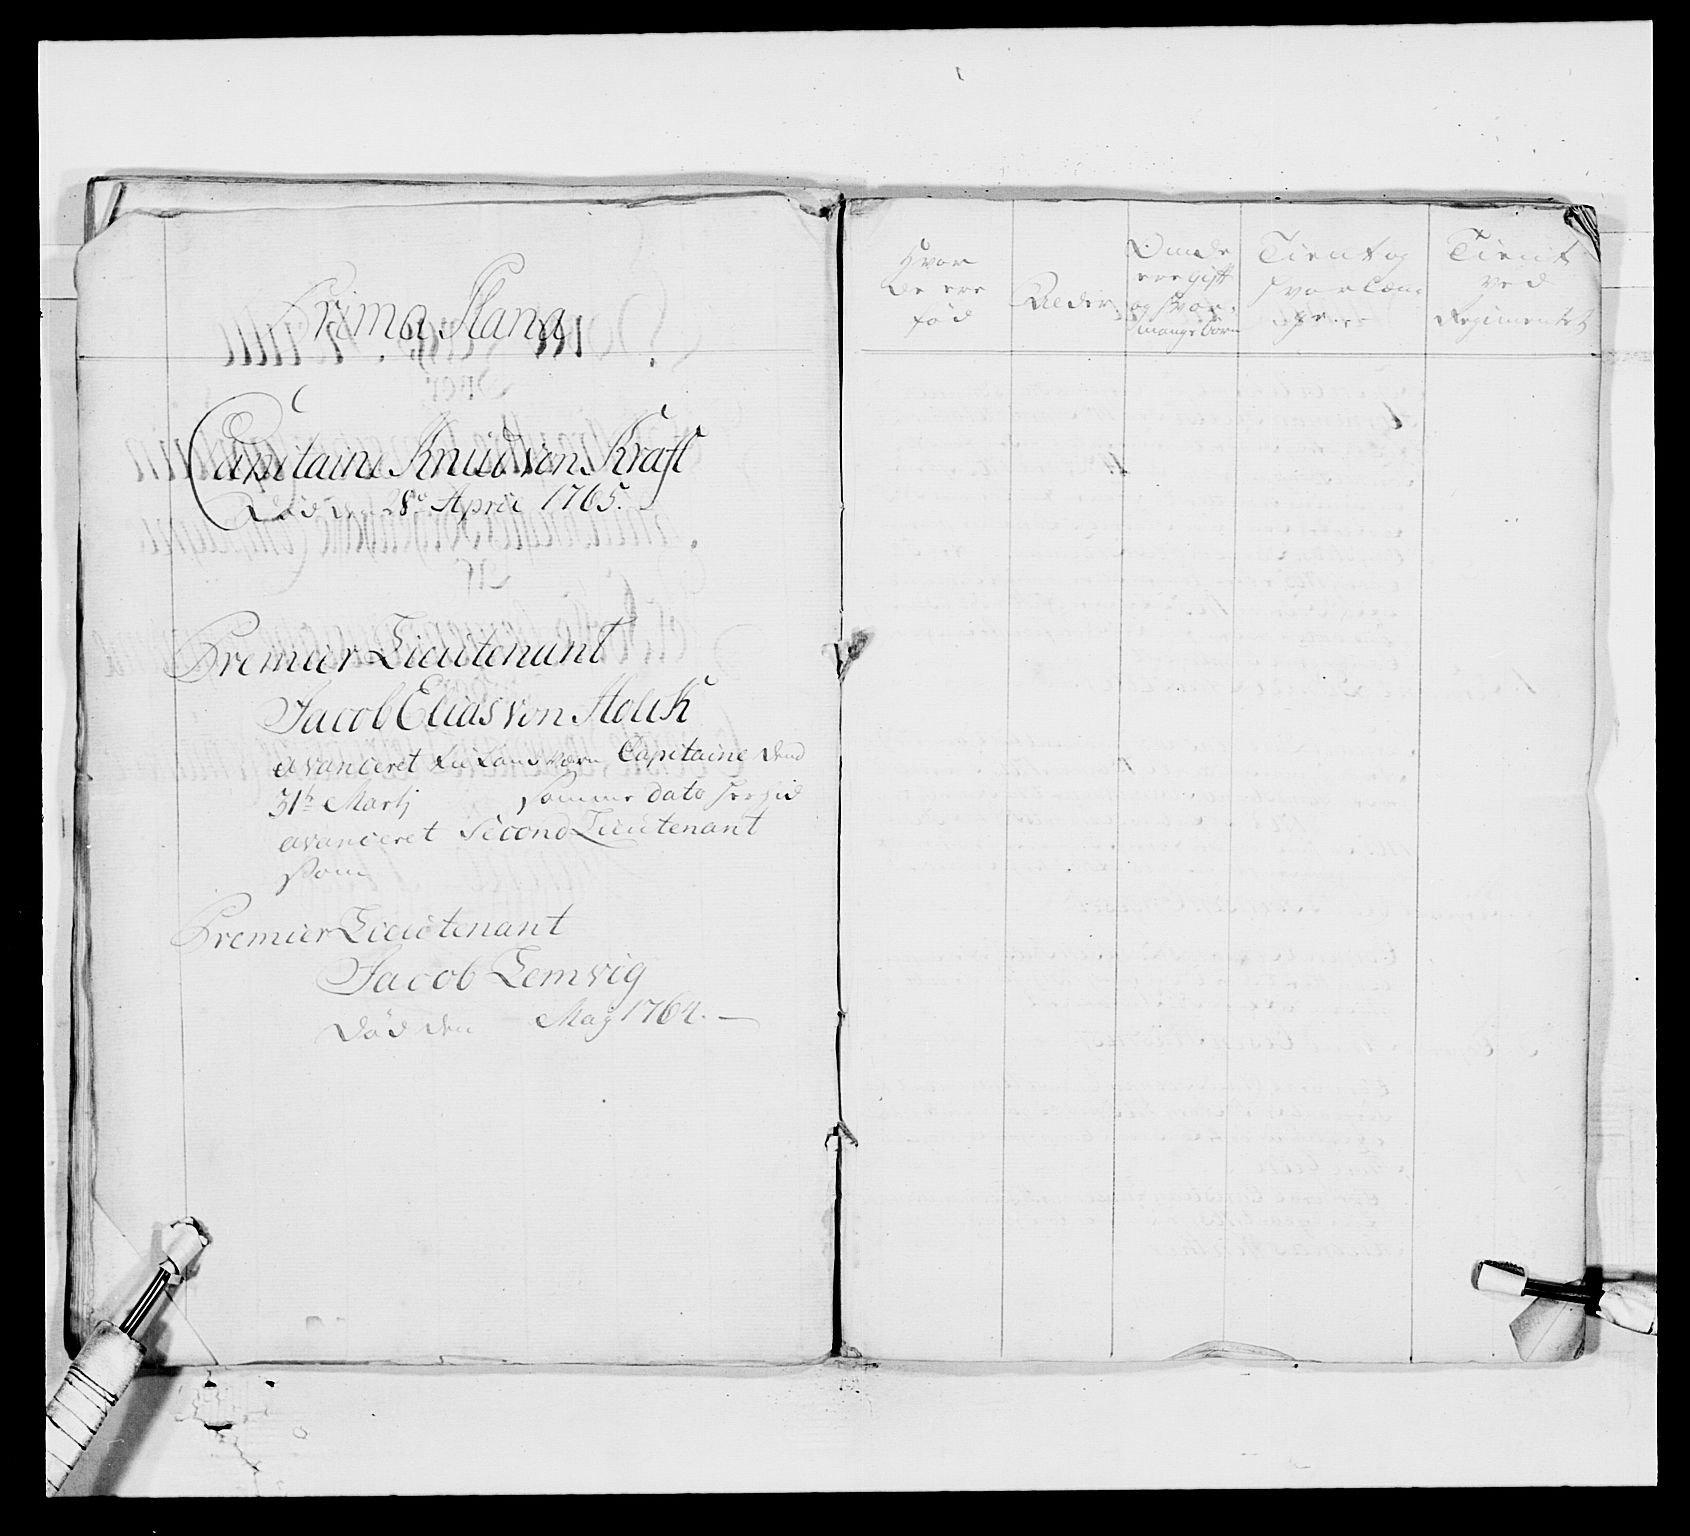 Prima Plana
Capitaine Knud von Kraft
Död den 28de April 1765.
Premier Lieutenant
Jacob Elias von Holck
avanceret Capitaine dend
31te Martj samme dato
avanceret Second Lieutenant
som
Premier Lieutenant
Jacob Lemvig
död den Maij 1764.
Hvor
de ere
född
Alder
Om de
ere gift
og hvor
mange börn
Tient og
hvor læn-
ge
Tient
ved
Regimentet